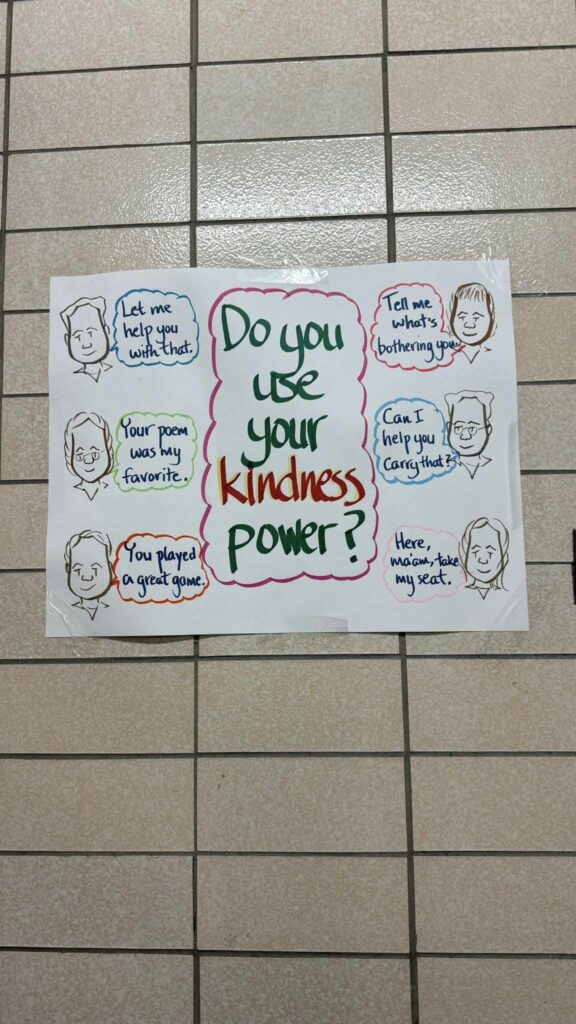 Do you
use
your
kindness
power?
Let me
help you
with that.
Your poem
was my
favorite.
You played
a great game.
Tell me
what's
bothering you.
Can I
help you
carry that?
Here,
ma'am, take
my seat.